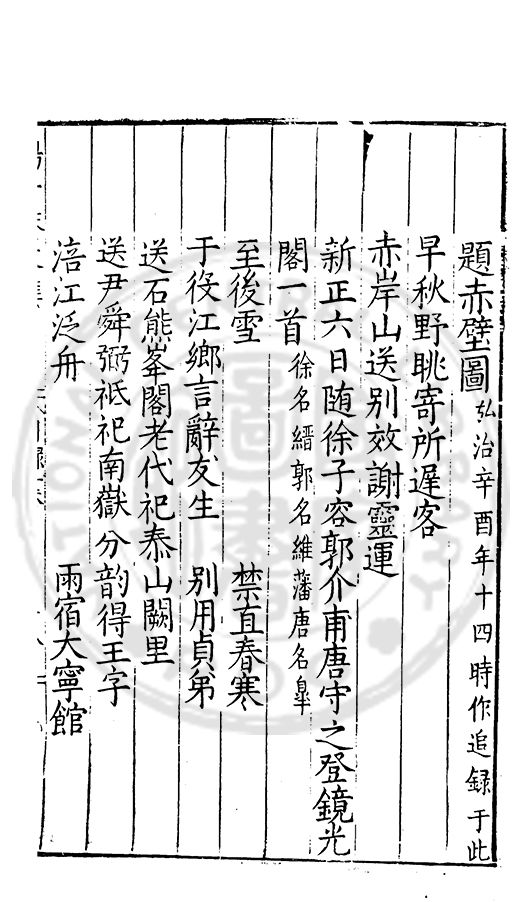 題赤壁圖弘治辛酉年十四時作追録于此
早秋野眺寄所遲客
赤岸山送别效謝靈運
新正六日随徐子容郭介甫唐守之登鏡光
閣一首徐名縉郭名維藩唐名臯
至後雪 禁直春寒
于役江鄉言辭友生 别用貞弟
送石熊峯閣老代祀泰山闕里
送尹舜弼祗祀南嶽分韵得王字
涪江泛舟 雨宿大寧館